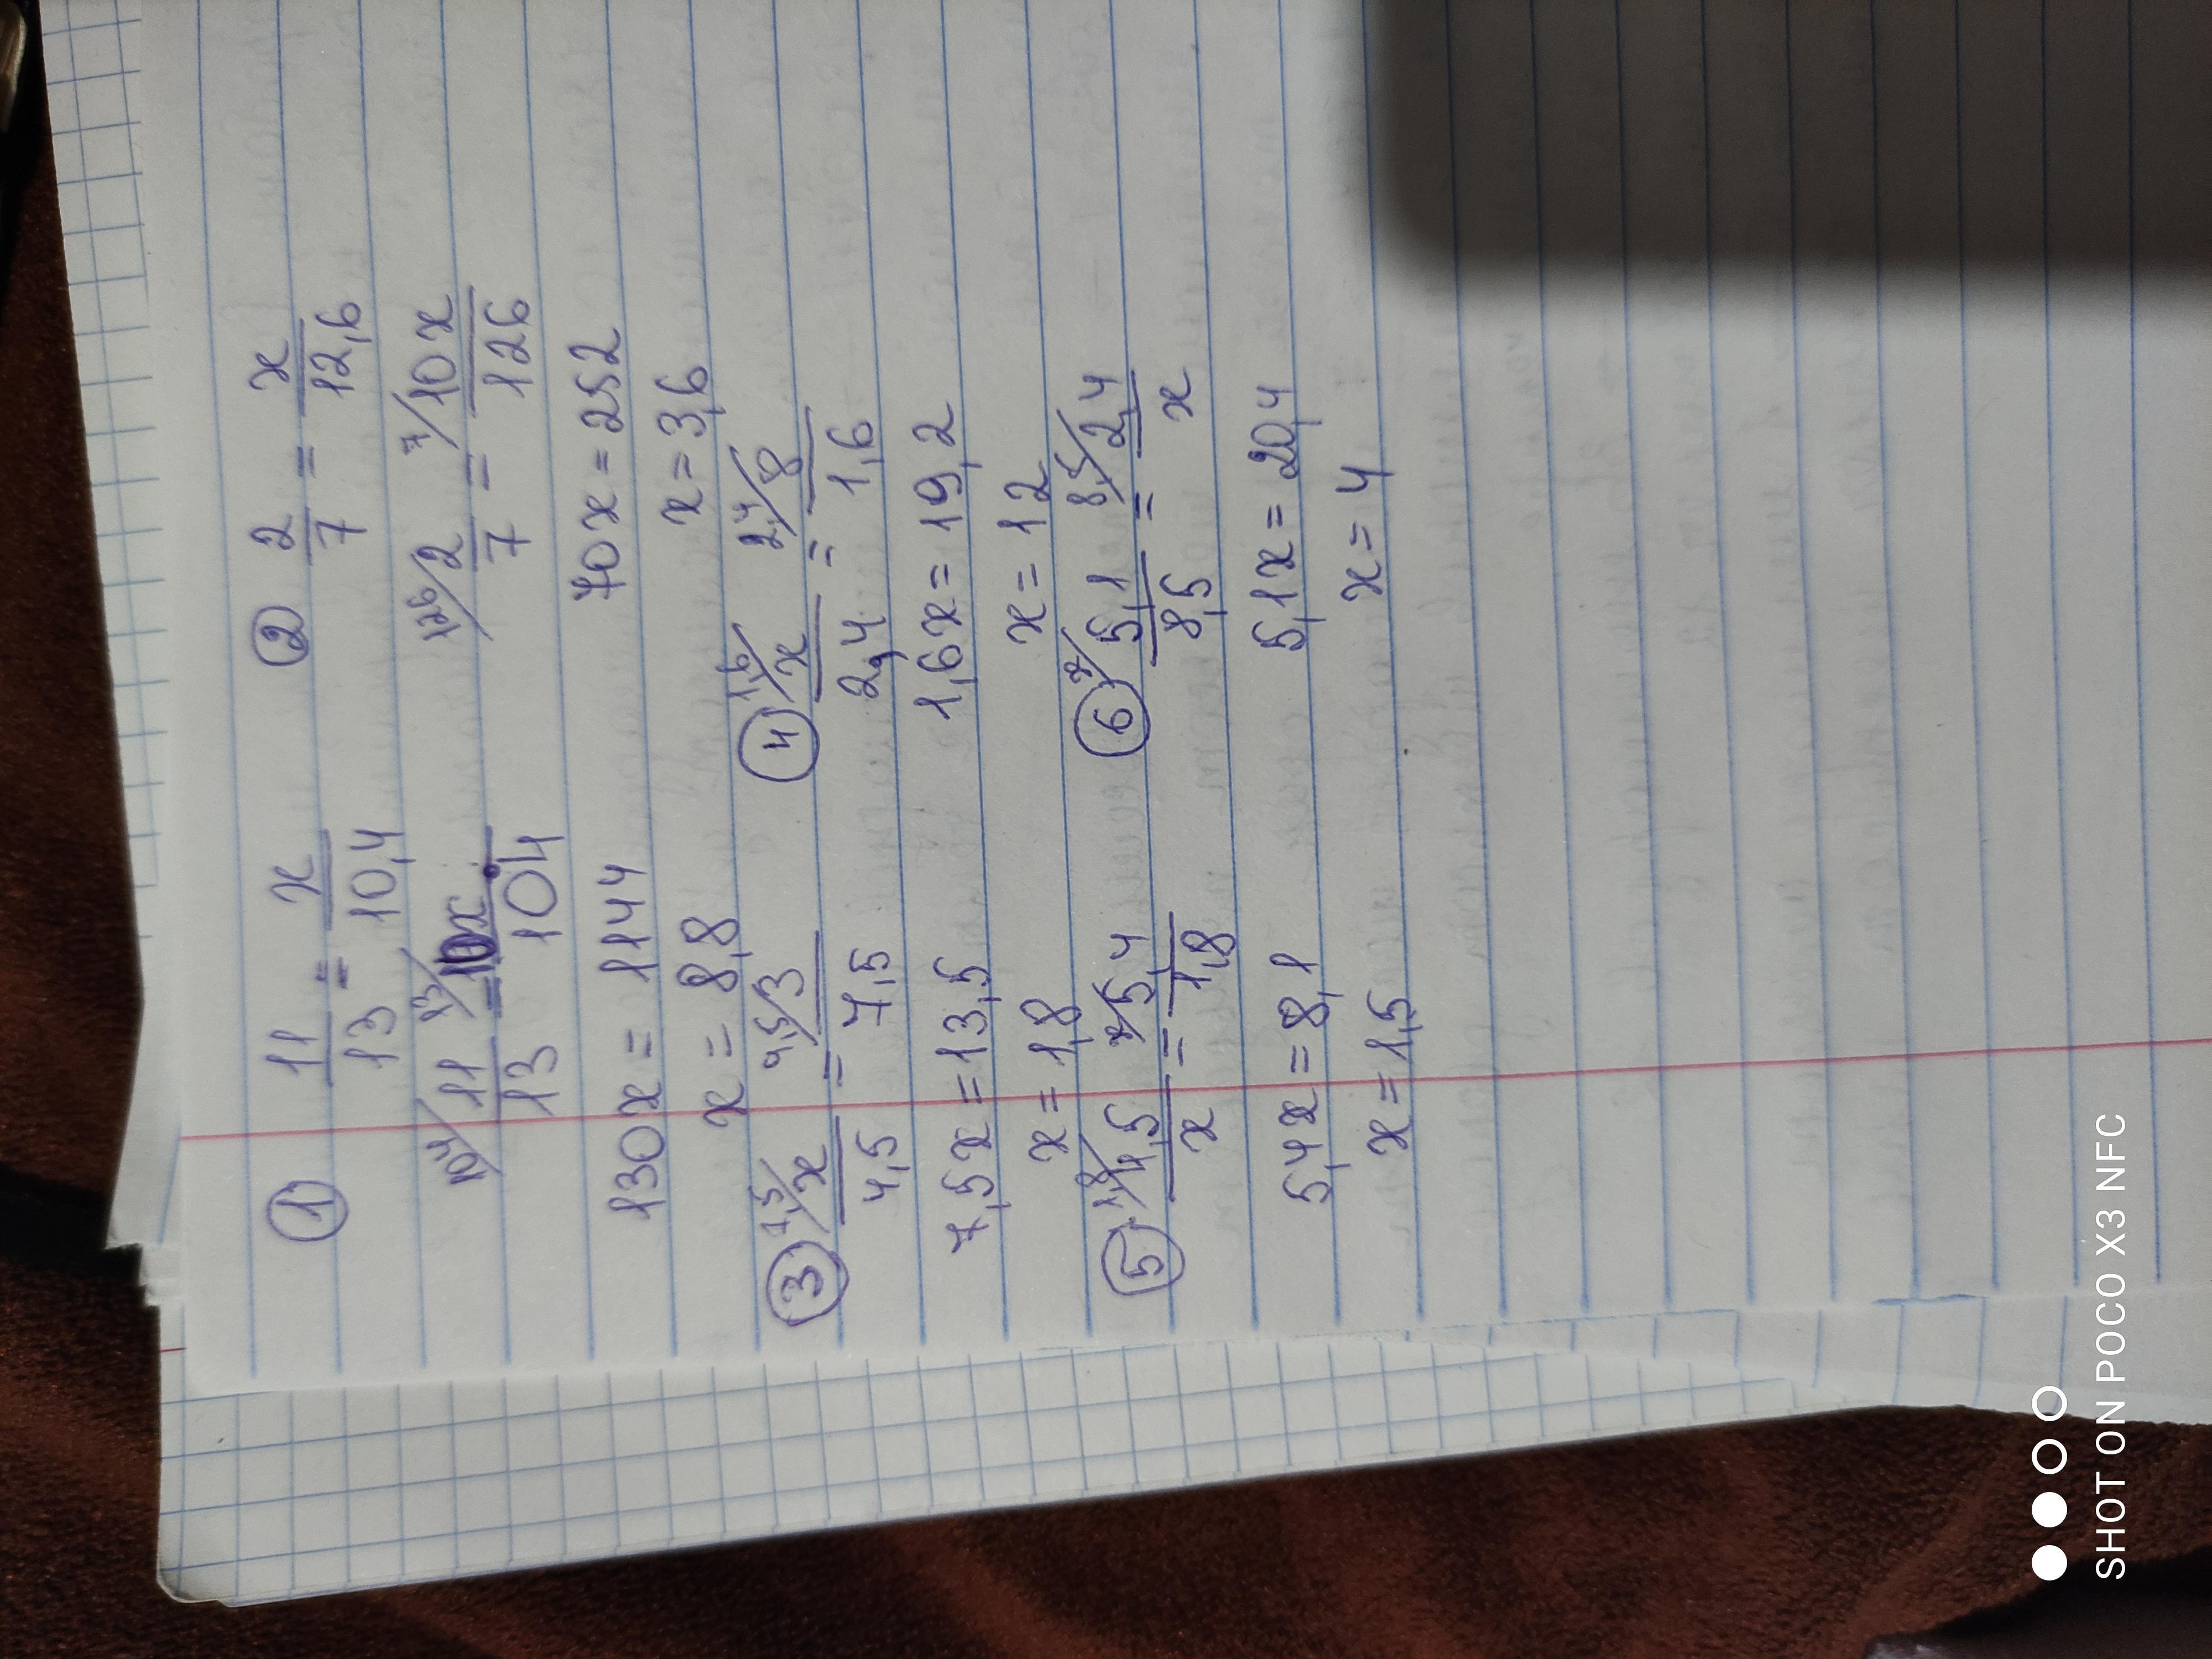 ① 11/13 = x/10,4
104/ 11/13 = 13/ 10x/104
130x = 1144
x = 8,8
② 2/7 = x/12,6
126/ 2/7 = 7/ 10x/126
70x = 252
x = 3,6
③ 7,5/ x/4,5 = 4,5/ 3/7,5
7,5x = 13,5
x = 1,8
④ 1,6/ x/2,4 = 2,4/ 8/1,6
1,6x = 19,2
x = 12
⑤ 1,8/ 4,5/x = x/ 5,4/1,8
5,4x = 8,1
x = 1,5
⑥ x/ 5,1/8,5 = 8,5/ 2,4/x
5,1x = 20,4
x = 4
SHOT ON POCO X3 NFC